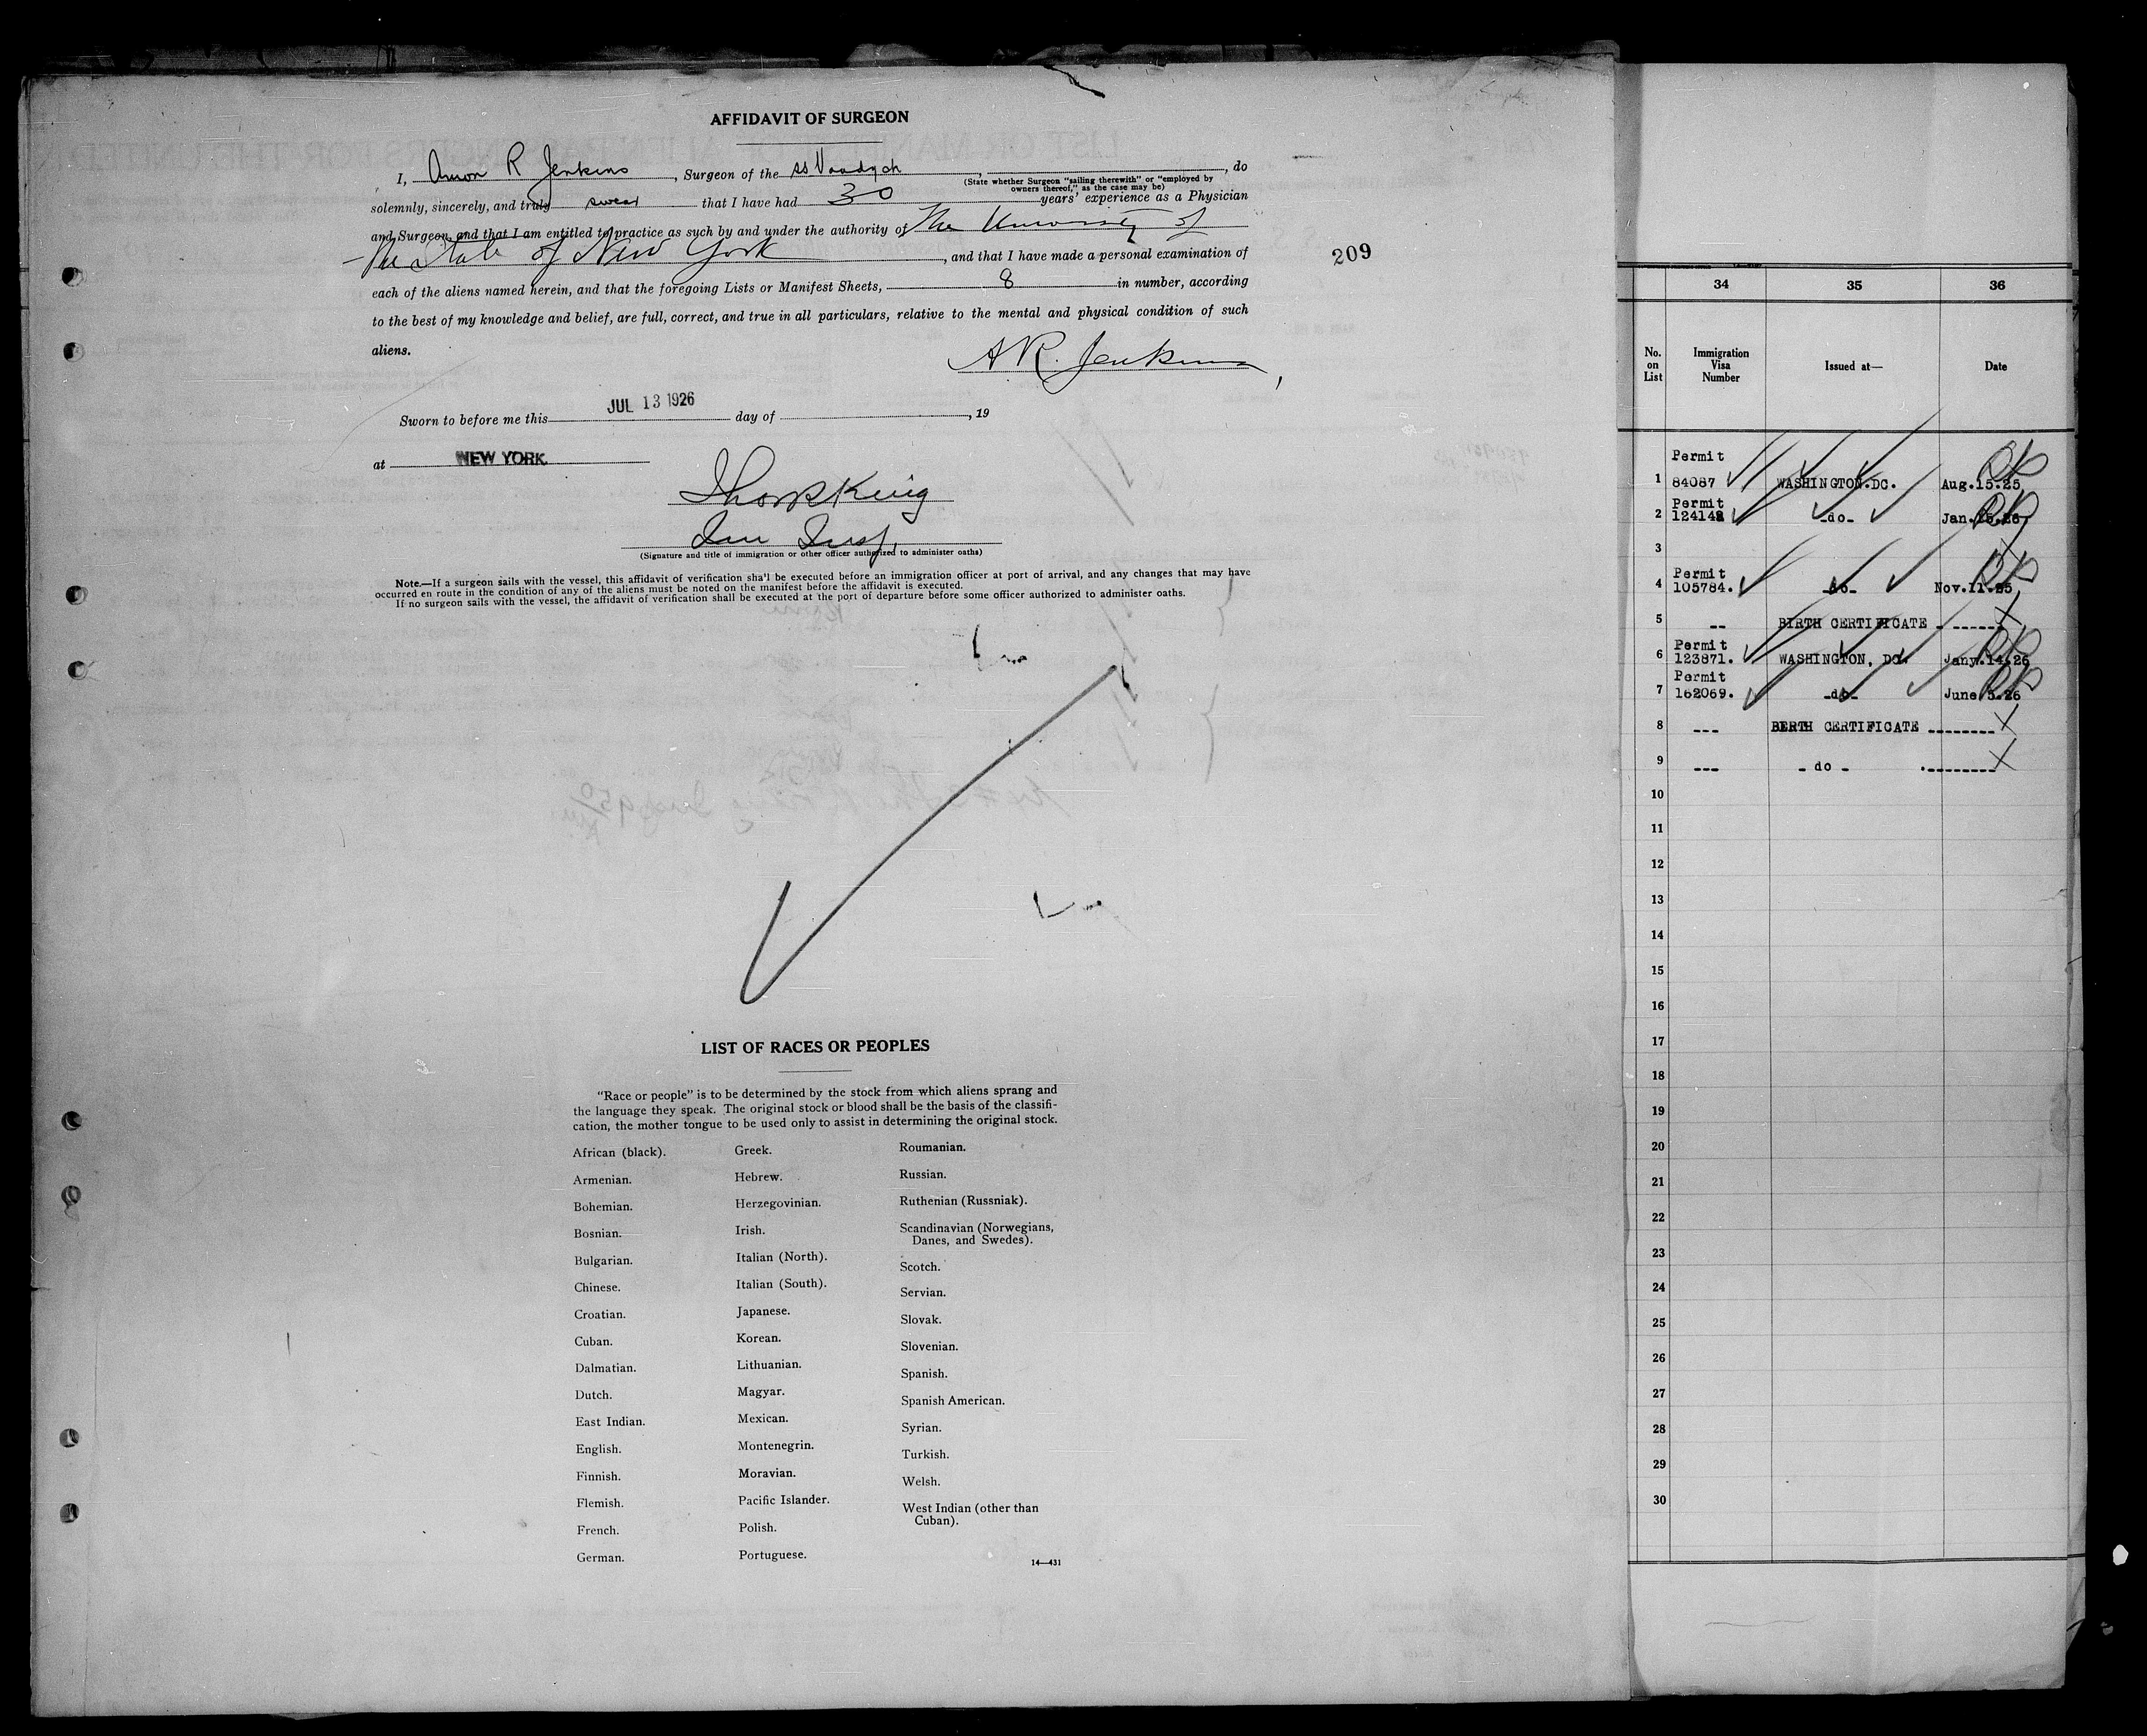 AFFIDAVIT OF SURGEON
I, Amon R Jenkins, Surgeon of the ss, do
(State whether Surgeon "sailing therewith" or "employed by
owners thereof," as the case may be)
solemnly, sincerely, and truly swear that I have had 30 years' experience as a Physician
and Surgeon, and that I am entitled to practice as such by and under the authority of The University of
the State of New York, and that I have made a personal examination of
each of the aliens named herein, and that the foregoing Lists or Manifest Sheets, 8 in number, according
to the best of my knowledge and belief, are full, correct, and true in all particulars, relative to the mental and physical condition of such
aliens.
A R. Jenkins
Sworn to before me this JUL 13 1926 day of , 19
at NEW YORK
King
Imm Insp.
(Signature and title of immigration or other officer authorized to administer oaths)
Note.—If a surgeon sails with the vessel, this affidavit of verification shall be executed before an immigration officer at port of arrival, and any changes that may have
occurred en route in the condition of any of the aliens must be noted on the manifest before the affidavit is executed.
If no surgeon sails with the vessel, the affidavit of verification shall be executed at the port of departure before some officer authorized to administer oaths.
209
LIST OF RACES OR PEOPLES
"Race or people" is to be determined by the stock from which aliens sprang and
the language they speak. The original stock or blood shall be the basis of the classifi-
cation, the mother tongue to be used only to assist in determining the original stock.
African (black).
Armenian.
Bohemian.
Bosnian.
Bulgarian.
Chinese.
Croatian.
Cuban.
Dalmatian.
Dutch.
East Indian.
English.
Finnish.
Flemish.
French.
German.
Greek.
Hebrew.
Herzegovinian.
Irish.
Italian (North).
Italian (South).
Japanese.
Korean.
Lithuanian.
Magyar.
Mexican.
Montenegrin.
Moravian.
Pacific Islander.
Polish.
Portuguese.
Roumanian.
Russian.
Ruthenian (Russniak).
Scandinavian (Norwegians,
Danes, and Swedes).
Scotch.
Servian.
Slovak.
Slovenian.
Spanish.
Spanish American.
Syrian.
Turkish.
Welsh.
West Indian (other than
Cuban).
14—431
34 35 36
No. on List
Immigration Visa Number
Issued at—
Date
Permit
1 84087 WASHINGTON.DC. Aug.15.25
Permit
2 124148 -do- Jan.15.26
3
Permit
4 105784. -do- Nov.11.25
5 -- BIRTH CERTIFICATE - ------
Permit
6 123871. WASHINGTON, DC. Jany.14.26
Permit
7 162069. -do- June.5.26
8 --- BERTH CERTIFICATE --------
9 --- - do - ---------
10
11
12
13
14
15
16
17
18
19
20
21
22
23
24
25
26
27
28
29
30